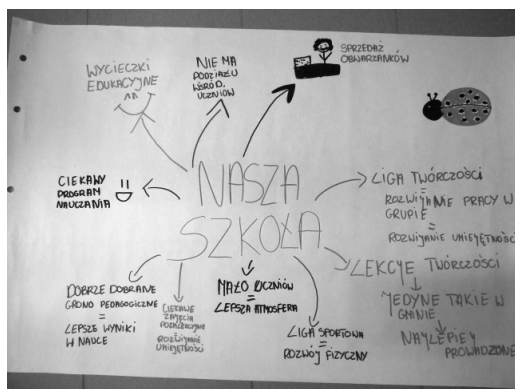 WYCIECZKI
EDUKACYJNE
NIE MA
PODZIAŁU
WŚRÓD
UCZNIÓW
SPRZEDAŻ
OBWARZANKÓW
CIEKAWY
PROGRAM
NAUCZANIA
NASZA
SZKOŁA
LIGA TWÓRCZOŚCI
=
ROZWIJANIE PRACY W
GRUPIE
=
ROZWIJANIE UMIEJĘTNOŚCI
LEKCJE TWÓRCZOŚCI
JEDYNE TAKIE W
GMINIE
NAJLEPIEJ
PROWADZONE
DOBRZE DOBRANE
GRONO PEDAGOGICZNE
=
LEPSZE WYNIKI
W NAUCE
CIEKAWE
ZAJĘCIA
POZALEKCYJNE
=
ROZWIJANIE
UMIEJĘTNOŚCI
MAŁO UCZNIÓW
=
LEPSZA ATMOSFERA
LIGA SPORTOWA
=
ROZWÓJ FIZYCZNY